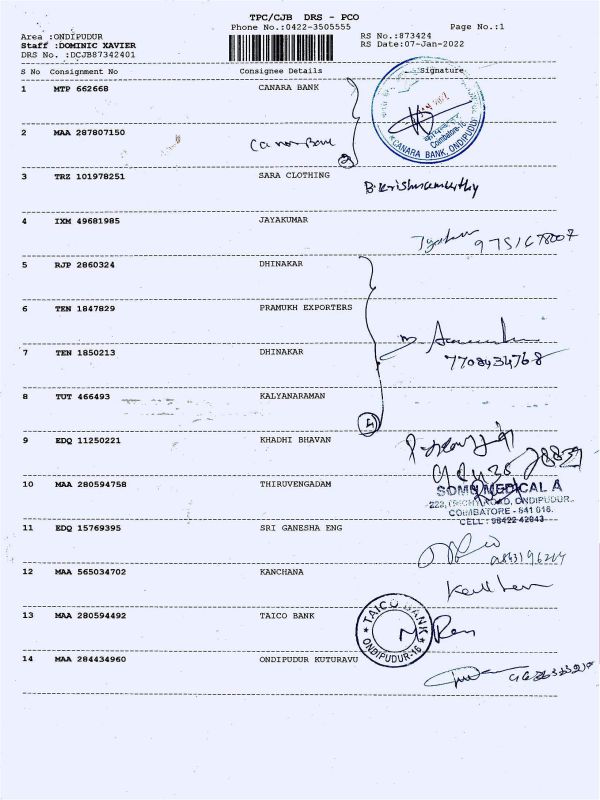 TPC/CJB DRS - PCO
Phone No.:0422-3505555 Page No.:1
Area :ONDIPUDUR RS No.:873424
Staff :DOMINIC XAVIER RS Date:07-Jan-2022
DRS No. :DCJB87342401
S No Consignment No Consignee Details Signature
1 MTP 662668 CANARA BANK
Coimbatore-16
CANARA BANK, ONDIPUDUR
2 MAA 287807150 Canara Bank
2
3 TRZ 101978251 SARA CLOTHING
B. Krishnamurthy
4 IXM 49681985 JAYAKUMAR
9751678007
5 RJP 2860324 DHINAKAR
6 TEN 1847829 PRAMUKH EXPORTERS
7 TEN 1850213 DHINAKAR
7708434768
8 TUT 466493 KALYANARAMAN
4
9 EDQ 11250221 KHADHI BHAVAN
10 MAA 280594758 THIRUVENGADAM
SOMU MEDICAL A
222, TRICHY ROAD, ONDIPUDUR.
COIMBATORE - 641 016.
CELL : 98422 42843
11 EDQ 15769395 SRI GANESHA ENG
12 MAA 565034702 KANCHANA
13 MAA 280594492 TAICO BANK
TAICO BANK
ONDIPUDUR-16
14 MAA 284434960 ONDIPUDUR KUTURAVU